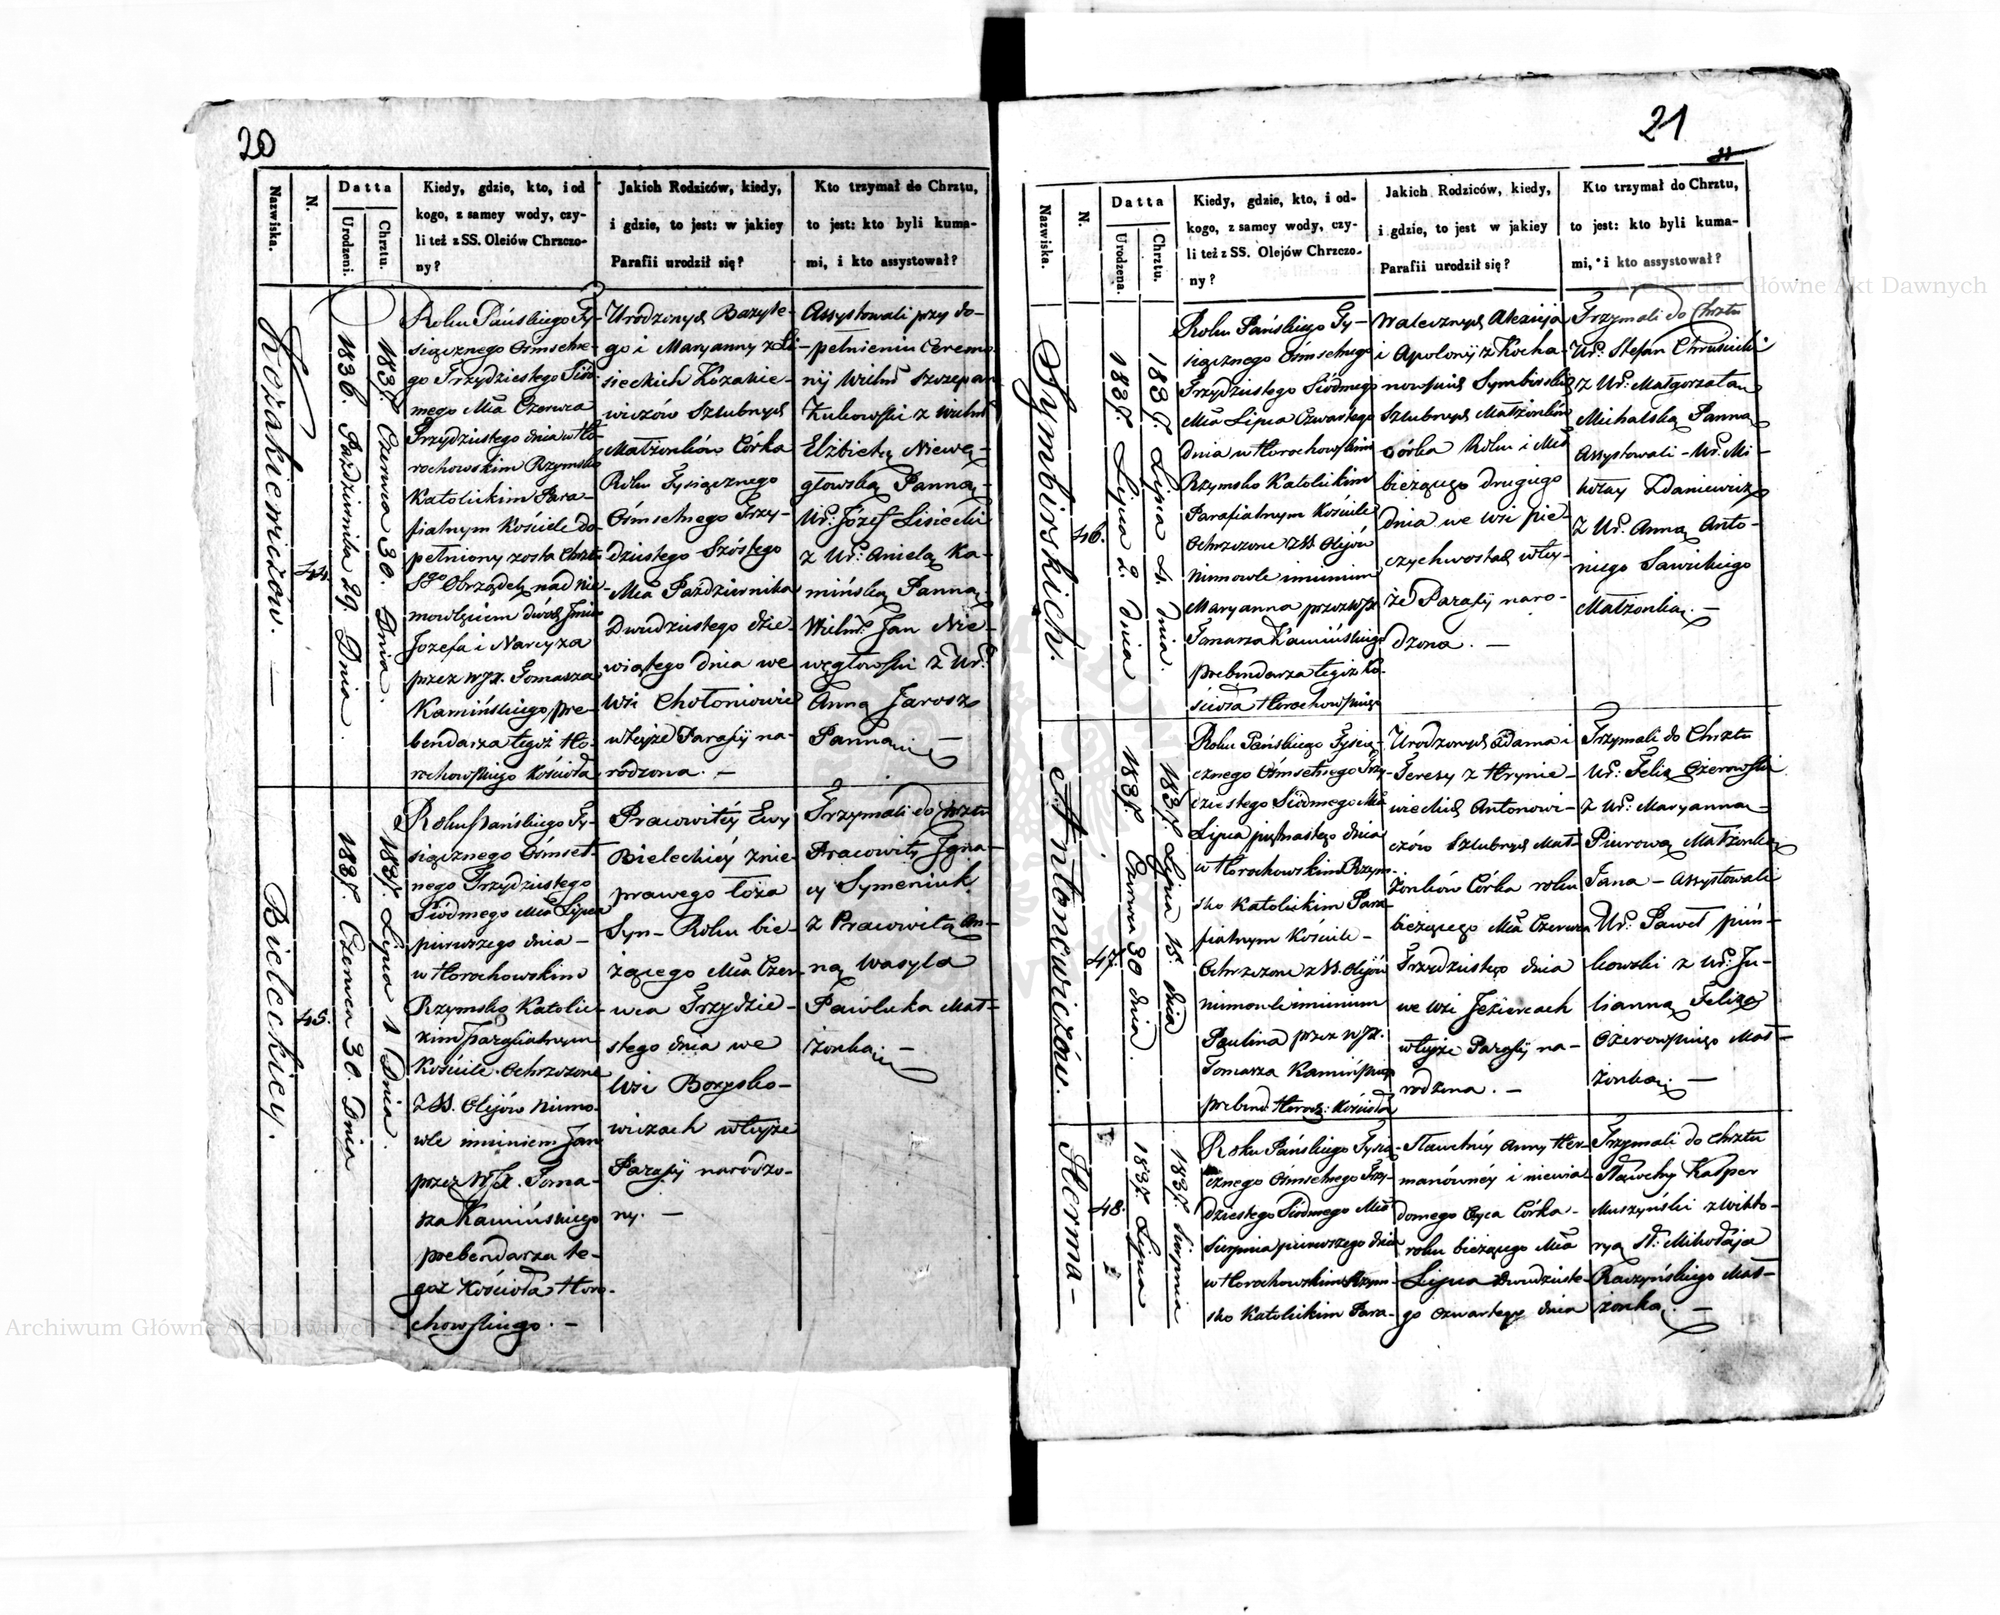 20
Nazwiska.
N.
Datta
Urodzeni.
Chrztu.
Kiedy, gdzie, kto, i od
kogo, z samey wody, czy-
li też z SS. Oleiów Chrzczo-
ny?
Jakich Rodziców, kiedy,
i gdzie, to jest: w jakiey
Parafii urodził się?
Kto trzymał do Chrztu,
to jest: kto byli kuma-
mi, i kto assystował?
Kozakiewiczow. —
44.
1836. Października 29. Dnia.
1837. Czerwca 30. Dnia.
Roku Pańskiego Ty-
siącznego Ośmsetne-
go Trzydziestego Siód-
mego Mca Czerwca
Trzydziestego dnia w Ho-
rochowskim Rzymsko
Katolickim Para-
fialnym Kościele do-
pełniony został Chrztu
Sgo Obrządek nad nie-
mowlęciem dwóch Imion
Jozefa i Narcyza
przez WJX. Tomasza
Kamińskiego, Pre-
bendarza tegoż Ho-
rochowskiego Kościoła
Urodzonych Bazyle-
go i Maryanny z Li-
sieckich Kozakie-
wiczów Szlubnych
Małżonków Córka
Roku Tysiącznego
Ośmsetnego Trzy-
dziestego Szóstego
Mca Października
Dwudziestego dzie-
wiątego dnia we
Wsi Chołoniowie
w tejże Parafij na-
rodzona. —
Assystowali przy do-
pełnieniu Ceremo-
nij Wielm: Szczepan
Żukowski z Wielm:
Elżbietą Niewę-
głowską Panną,
Ur: Józef Lisiecki
z Ur: Anielą Ka-
mińską Panną,
Wielm: Jan Nie-
węgłowski z Ur:
Anną Jarosz
Panną. —
Bieleckiey.
45.
1837. Czerwca 30. Dnia
1837. Lipca 1 Dnia.
Roku Pańskiego Ty-
siącznego Ośmset-
nego Trzydziestego
Siódmego Mca Lipca
pierwszego dnia —
w Horochowskim
Rzymsko Katolic-
kim Parafialnym
Kościele Ochrzczone
z SS. Olejów niemo-
wle imieniem Jan
przez WJX. Toma-
sza Kamińskiego
prebendarza te-
goż Kościoła Horo-
chowskiego. —
Pracowitéy Ewy
Bieleckiéy z nie-
prawego łoża
Syn — Roku bie-
żącego Mca Czer-
wca Trzydzie-
stego dnia we
Wsi Borysko-
wiczach w tejże
Parafij narodzo-
ny. —
Trzymali do Chrztu
Pracowity Igna-
cy Symeniuk
z Pracowitą An-
ną Wasyla
Pawluka Mał-
żonką. —
21
11
Nazwiska.
N.
Datta
Urodzena.
Chrztu.
Kiedy, gdzie, kto, i od-
kogo, z samey wody, czy-
li też z SS. Olejów Chrzczo-
ny?
Jakich Rodziców, kiedy,
i gdzie, to jest w jakiey
Parafii urodził się?
Kto trzymał do Chrztu,
to jest: kto byli kuma-
mi, i kto assystował?
Symbirskich.
46.
1837. Lipca 2. Dnia
1837. Lipca 4. Dnia.
Roku Pańskiego Ty-
siącznego Ośmsetnego
Trzydziestego Siódmego
Mca Lipca Czwartego
dnia w Horochowskim
Rzymsko Katolickim
Parafialnym Kościele
Ochrzczone z SS. Olejów
niemowle imieniem
Maryanna przez WJX.
Tomasza Kamińskiego
prebendarza tegoż Ko-
ścioła Horochowskiego
Walecznych Alexieja
i Apolonij z Kocha-
nowskich Symbirskich
Szlubnych Małżonków
Córka Roku i Mca
bieżącego drugiego
dnia we Wsi Pie-
czychwostach w tey-
że Parafij naro-
dzona. —
Trzymali do Chrztu
Ur: Stefan Chrusicki
z Ur: Małgorzatą
Michalską Panną
Assystowali — Ur: Mi-
kołay Zdaniewicz
z Ur: Anną Anto-
niego Sawickiego
Małżonką. —
Antonowiczów.
47.
1837. Czerwca 30 dnia.
1837. Lipca 15 dnia
Roku Pańskiego Tysią-
cznego Ośmsetnego Trzy-
dziestego Siódmego Mca
Lipca piętnastego dnia
w Horochowskim Rzym-
sko Katolickim Para-
fialnym Kościele —
Ochrzczone z SS. Olejów
niemowle imieniem
Paulina przez WJX.
Tomasza Kamińskiego
prebend: Horoch: Kościoła
Urodzonych Adama i
Teresy z Hrynie-
wieckich Antonowi-
czów Szlubnych Mał-
żonków Córka roku
bieżącego Mca Czerwca
Trzydziestego dnia
we Wsi Jeziercach
w teyże Parafij na-
rodzona. —
Trzymali do Chrztu
Ur: Felix Ożerowski
z Ur: Maryanną
Piurową Małżonką
Jana — Assystowali
Ur: Paweł Pień-
kowski z Ur: Ju-
lianną Felixa
Ożerowskiego Mał-
żonką. —
Herma-
48.
1837. Lipca
1837. Sierpnia
Roku Pańskiego Tysią-
cznego Ośmsetnego Trzy-
dziestego Siódmego Mca
Sierpnia pierwszego dnia
w Horochowskim Rzym-
sko Katolickim Para-
Sławetnéy Anny Her-
manównéy i niewia-
domego Oyca Córka —
roku bieżącego Mca
Lipca Dwudzieste-
go czwartego dnia
Trzymali do Chrztu
Sławetny Kasper
Muszyński z Wikto-
ryą Sł: Mikołaja
Raczyńskiego Mał-
żonką. —
Archiwum Główne Akt Dawnych
Archiwum Główne Akt Dawnych